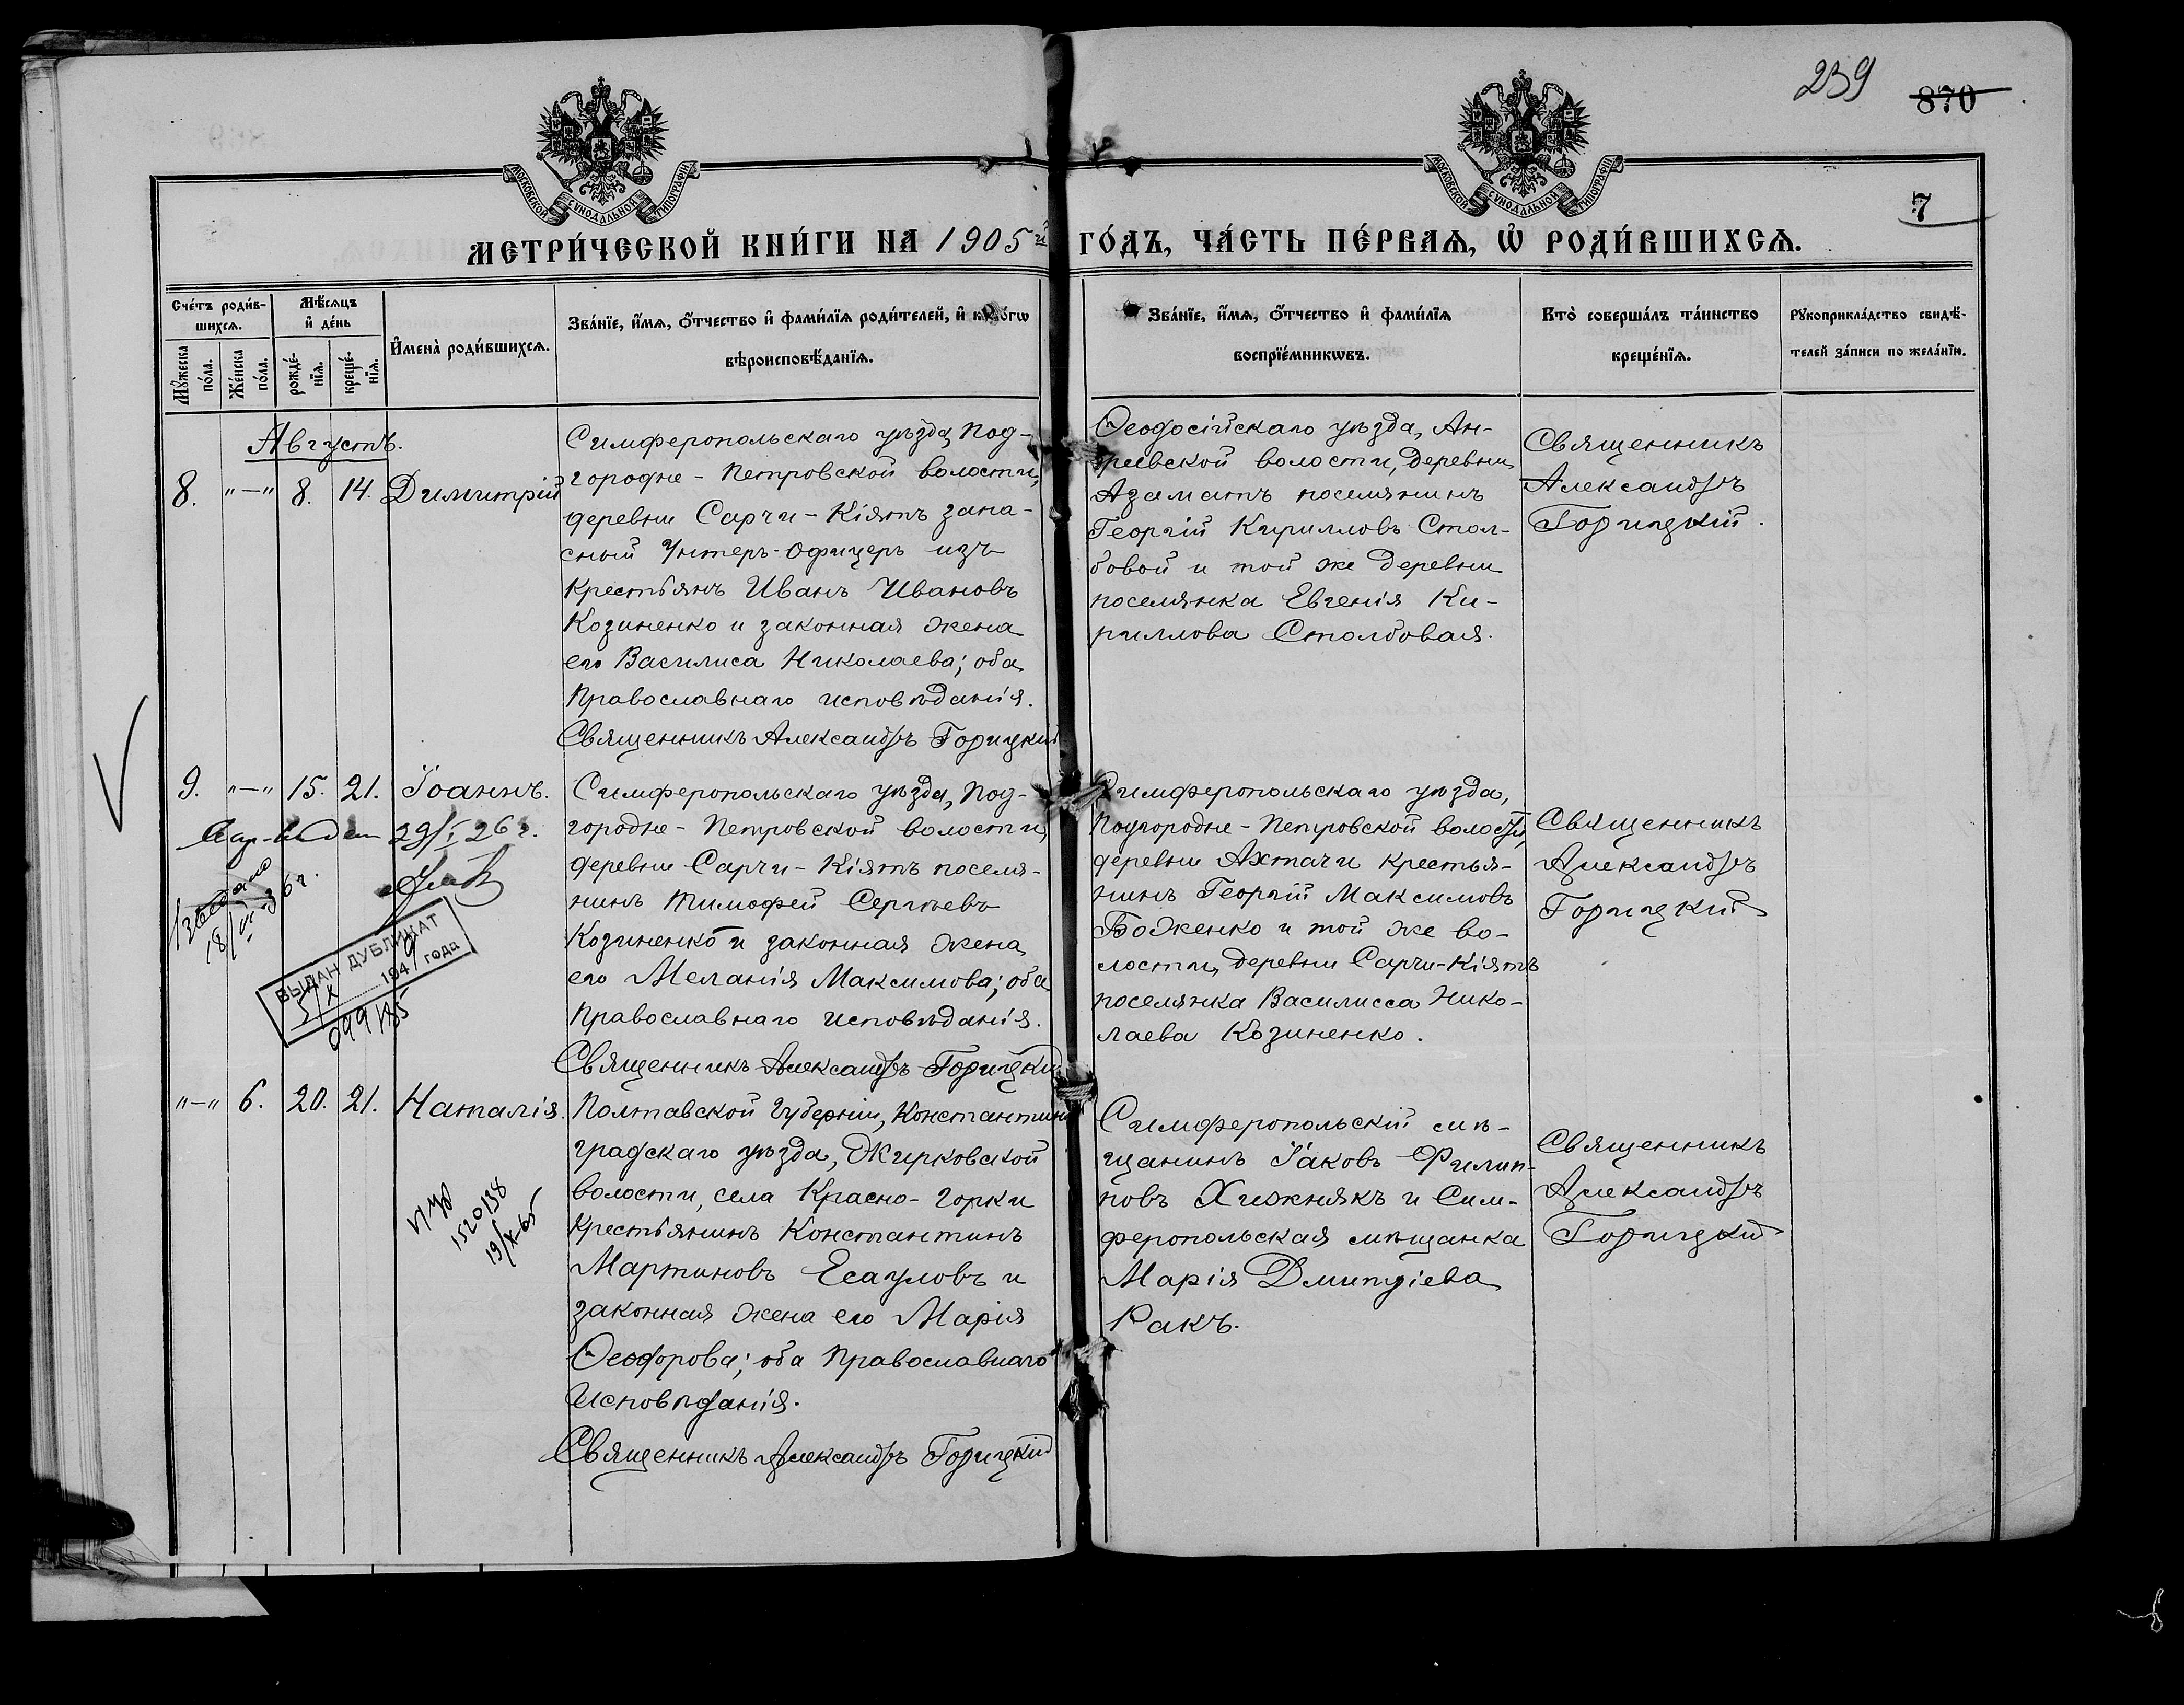 239
870
7
МОСКОВСКОЙ СѴНОДАЛЬНОЙ ТИПОГРАФІИ
МОСКОВСКОЙ СѴНОДАЛЬНОЙ ТИПОГРАФІИ
МЕТРИ́ЧЕСКОЙ КНИ́ГИ НА 1905й ГО́ДЪ, ЧА́СТЬ ПЕ́РВАѦ, Ѡ҆ РОДИ́ВШИХСѦ.
Сче́тъ роди́в-
шихсѧ.
Мѣ́сѧцъ
и҆ де́нь
Мꙋ́жеска
по́ла.
Же́нска
по́ла.
рожде́-
нїѧ.
креще́-
нїѧ.
И҆мена̀ роди́вшихсѧ.
Зва́нїе, и҆́мѧ, ѻ҆́тчество и҆ фами́лїѧ роди́телей, и҆ како́гѡ
вѣроисповѣ́данїѧ.
Зва́нїе, и҆́мѧ, ѻ҆́тчество и҆ фами́лїѧ
воспрїе́мникѡвъ.
Кто̀ соверша́лъ та́инство
креще́нїѧ.
Рꙋкоприкла́дство свидѣ́-
телей за́писи по жела́нїю.
Августъ.
8. "—" 8. 14. Димитрій
Симферопольскаго уѣзда, Под-
городне-Петровской волости,
деревни Сарчи-Кіятъ запа-
сный Унтеръ-Офицеръ изъ
крестьянъ Иванъ Ивановъ
Козиненко и законная жена
его Василиса Николаева; оба
Православнаго исповѣданія.
Священникъ Александръ Горицкій
Ѳеодосійскаго уѣзда, Ан-
дреевской волости, деревни
Азаматъ поселянинъ
Георгій Кирилловъ Стол-
бовой и той же деревни
поселянка Евгенія Ки-
риллова Столбовая.
Священникъ
Александръ
Горицкій.
9. "—" 15. 21. Іоаннъ.
29/I 26 г.
18/VI-36 г.
ВЫДАН ДУБЛИКАТ
5/X 1949 года
Симферопольскаго уѣзда, Под-
городне-Петровской волости,
деревни Сарчи-Кіятъ поселя-
нинъ Тимофей Сергѣевъ
Козиненко и законная жена
его Меланія Максимова; оба
Православнаго исповѣданія.
Священникъ Александръ Горицкій
Симферопольскаго уѣзда,
Подгородне-Петровской волости,
деревни Ахтачи крестья-
нинъ Георгій Максимовъ
Боженко и той же во-
лости, деревни Сарчи-Кіятъ
поселянка Василисса Нико-
лаева Козиненко.
Священникъ
Александръ
Горицкій
"—" 6. 20. 21. Наталія.
1520138
19/X-65
Полтавской Губерніи, Константино-
градскаго уѣзда, Жирковской
волости, села Красно-Горки
крестьянинъ Константинъ
Мартиновъ Есауловъ и
законная жена его Марія
Ѳеодорова; оба Православнаго
исповѣданія.
Священникъ Александръ Горицкій
Симферопольскій мѣ-
щанинъ Іаковъ Филип-
повъ Хижнякъ и Сим-
феропольская мѣщанка
Марія Димитріева
Ракъ.
Священникъ
Александръ
Горицкій